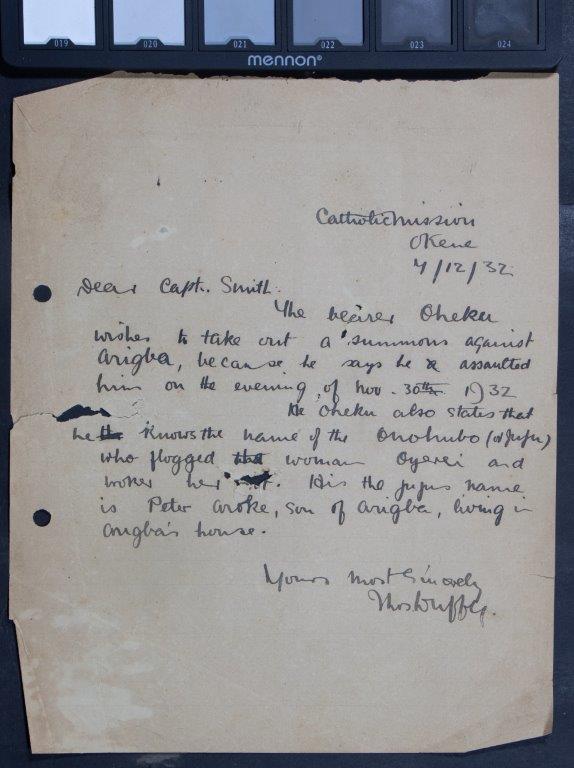 019 020 021 022 023 024
mennon®
Catholic Mission
Okene
7/12/32
Dear Capt. Smith.
The bearer Oheku
wishes to take out a summons against
Arigba, because he says he assaulted
him on the evening of Nov. 30th 1932
He Oheku also states that
he knows the name of the Onohubo (or Juju)
who flogged the woman Oyerei and
her. His the jujus name
is Peter Aroke, son of Arigba, living in
Arigba's house.
Yours most Sincerely
Thos Duffy.